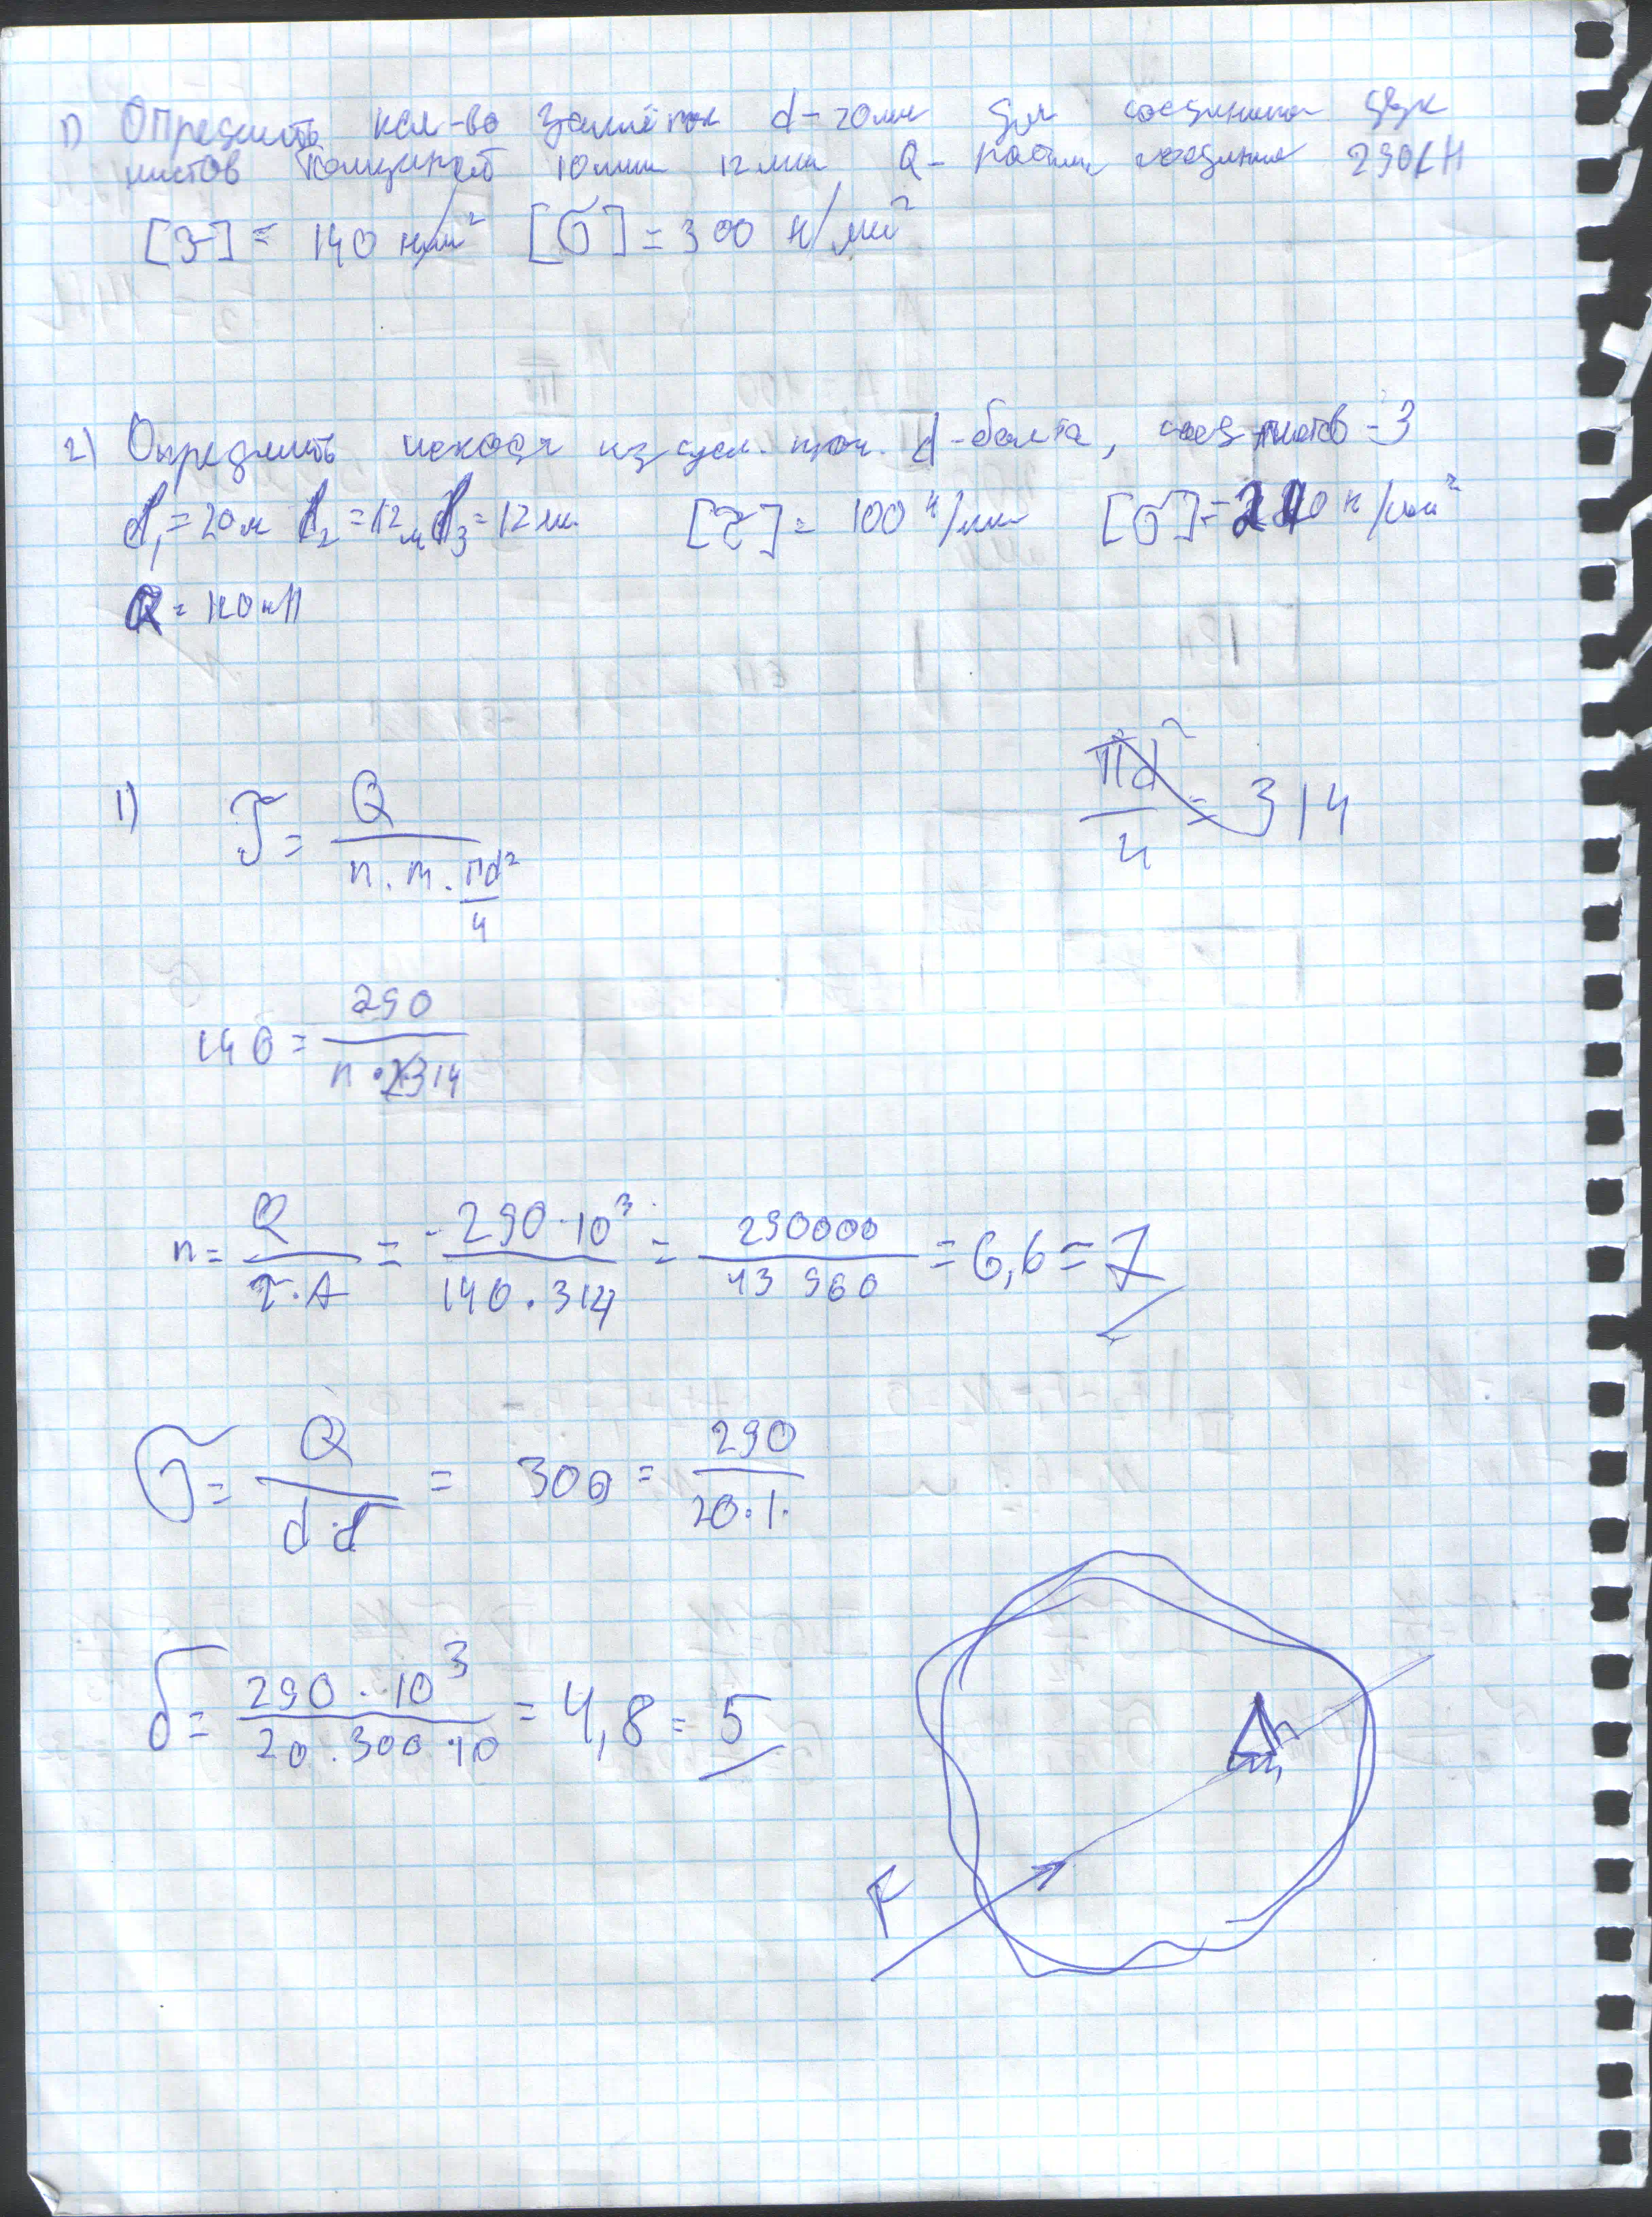 1) Определить кол-во заклёпок d-20мм для соединения двух
листов толщиной 10мм 12мм Q- соединения 290кН
[τ]= 140 н/мм² [σ]=300 н/мм²
2) Определить исходя из усл. проч. d-болта, соед листов-3
d₁=20м d₂=12м d₃=12мм [τ]= 100 н/мм [σ]= н/мм²
Q=120кН
πd²/4 = 314
1) τ= Q/(n·m·πd²/4)
140= 290/(n·314)
n= Q/(τ·A) = 290·10³/(140·314) = 290000/43960 = 6,6=7
σ= Q/(d·d) = 300= 290/(20·1·
δ= 290·10³/(20·300·10) = 4,8=5
F